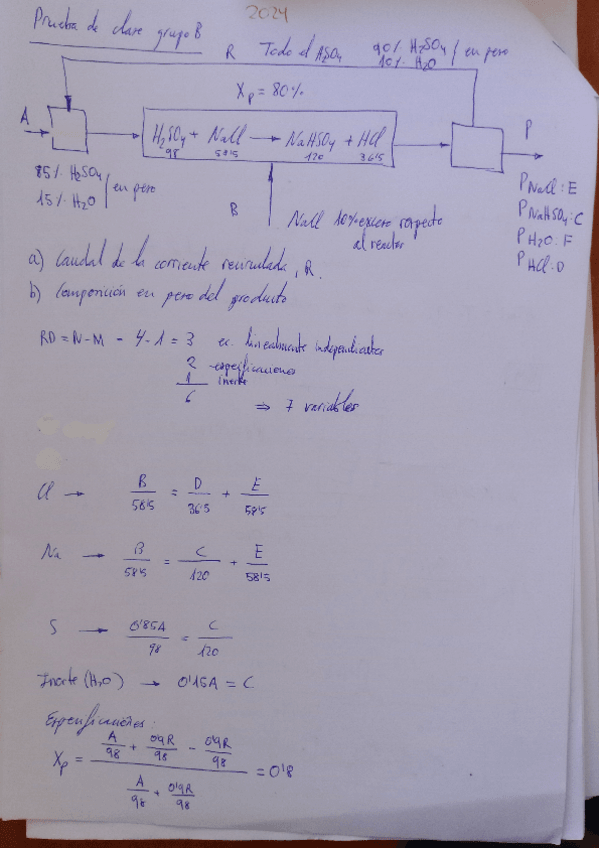 2024
Prueba de clase grupo B
R Todo el H2SO4 90% H2SO4 / en peso
10% H2O
Xp = 80%
A
H2SO4 + NaCl → NaHSO4 + HCl
98 58'5 120 36'5
P
85% H2SO4 / en peso
15% H2O
B
NaCl 10% exceso respecto
al reactor
P NaCl : E
P NaHSO4 : C
P H2O : F
P HCl : D
a) Caudal de la corriente recirculada, R.
b) Composición en peso del producto
RD = N-M - 4-1 = 3 ec. linealmente independientes
2 especificaciones
1 inerte
6 ⇒ 7 variables
Cl → B/58'5 = D/36'5 + E/58'5
Na → B/58'5 = C/120 + E/58'5
S → 0'85A/98 = C/120
Inerte (H2O) → 0'15A = C
Especificaciones:
Xp = (A/98 + 0'9R/98 - 0'9R/98) / (A/98 + 0'9R/98) = 0'8